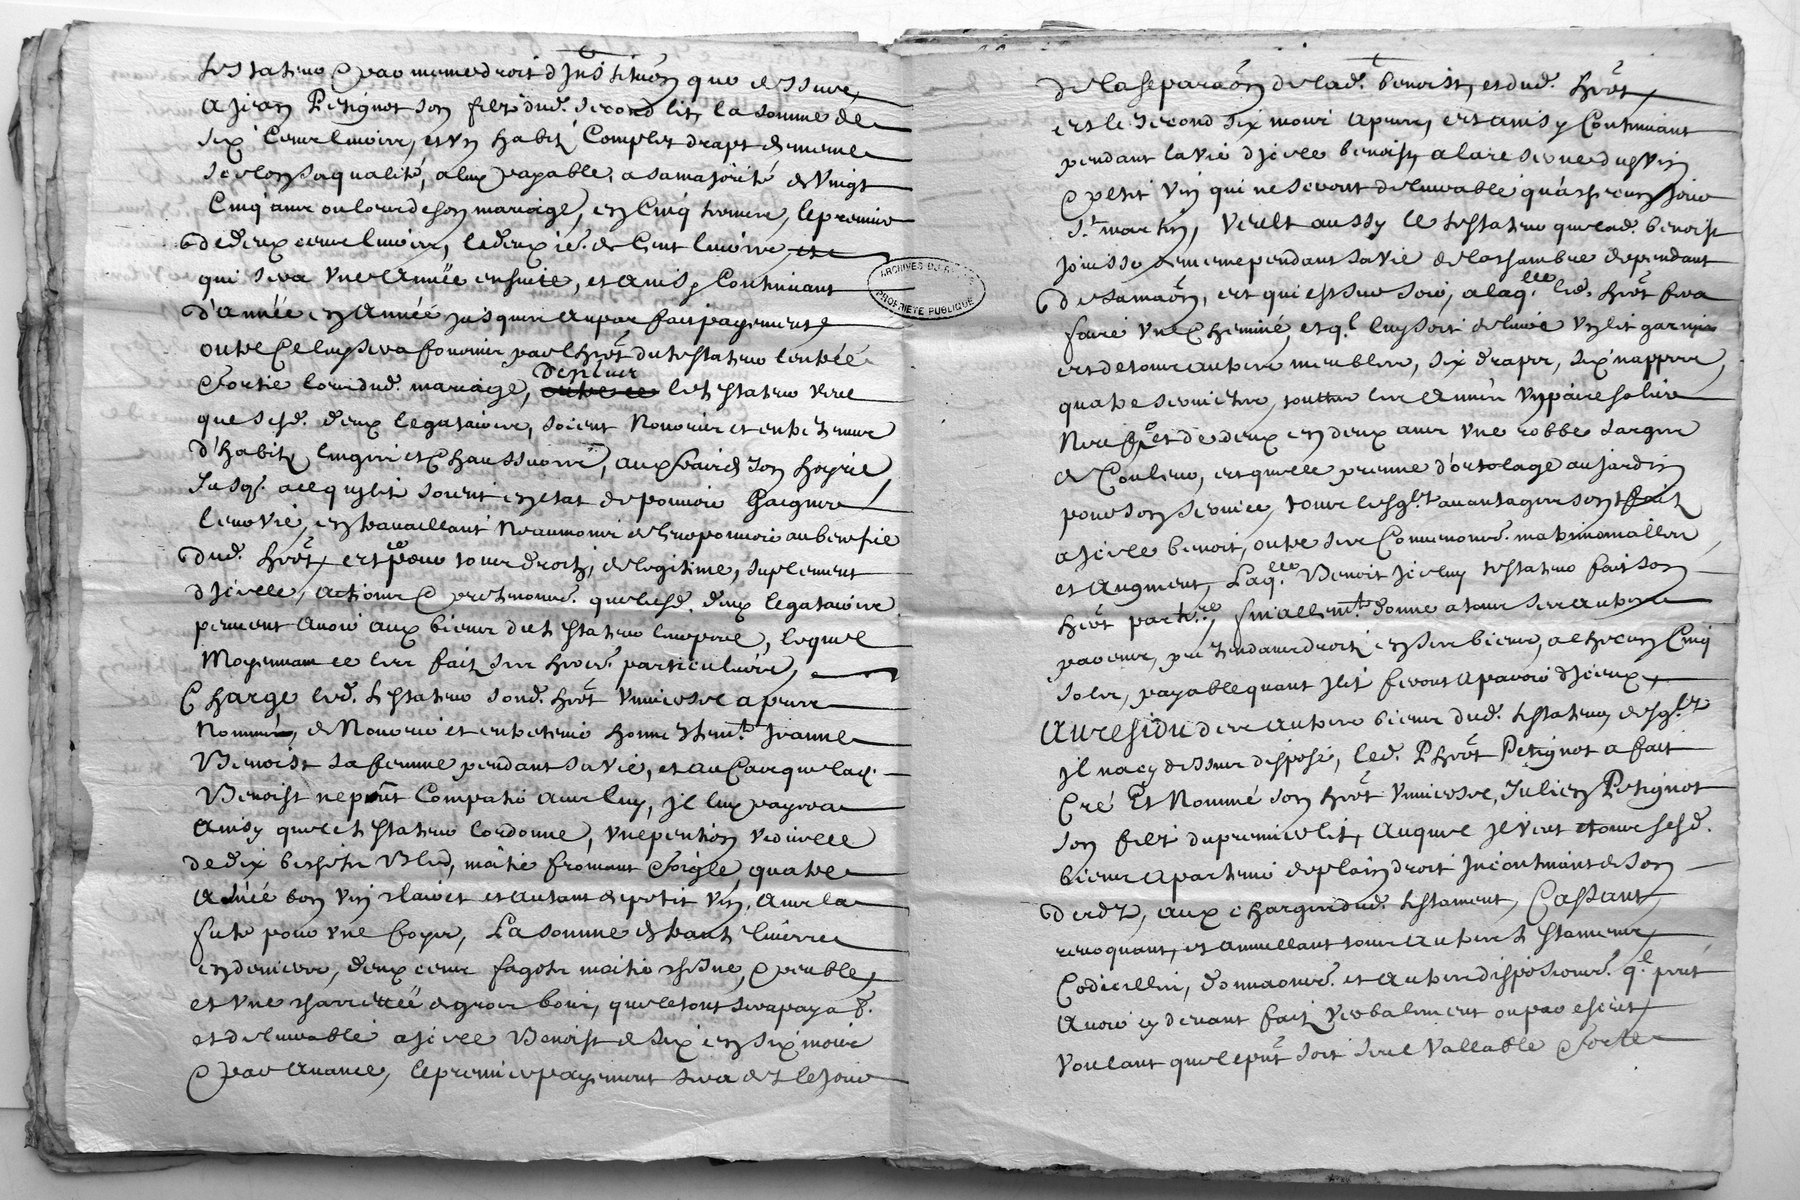 testateur & par mesme droit d'Institu~on que dessus,
a Jean Petignot son filz dud. second lit, la somme de
six cens livres, et un habit complet drapt de mesme
selon sa qualité, a luy payable, a sa majorité de vingt
cinq ans ou lors de son mariage, en cinq termes, le premier
de deux cens livres, les deux ie. de cent livres
qui sera une année ensuite, et ainsy continuant
d'année en année jusques au parfait payement,
outre ce luy sera fournir par l'her~ du testateur l'entrée
& sortie lors dud. mariage, de plus le testateur veut
que sesd. deux legataires, soient nourris et entretenus
d'habitz linges et chaussures, aux frais de son hoyrie,
jusq. a ce qu'ilz soient en estat de pouvoir gaigner
leur vie, en travaillant neaumoins de leur pouvoir au benefice
dud. her~, et ce pour tous droitz, de legitime, suplement
d'icelle, actions & pretentions. que lesd. deux legataires
peuvent avoir aux biens du testateur leur pere, lequel
Moyennant ce les fait ses hers. particuliers,
Charge led. testateur sond. her~ universel apres
nommé, de nourrir et entretenir honnestem~t Jeanne
Benoist sa femme pendant sa vie, et au cas que lad.
Benoist ne peut compatir avec luy, il luy payera
ainsy que le testateur l'ordonne, une pention viduelle
de dix bichetz bled, moitié froment & seigle, quatre
asnée bon vin clairet et autant de petit vin, avec la
fute pour une foyes, la somme de trente livres
en deniers, deux cens fagotz moitié chesne, & peuble,
et une charretée de gros bois, que le tout sera paya~.
et delivrable a icelle Benoist de six en six mois
& par avance, le premier payement sera dez le jour
de la separa~on de lad. benoist, et dud. her~,
et le second six mois apres, et ainsy continuant
pendant la vie d'icelle benoist, a la reserve du vin
& petit vin qui ne seront delivrable qu'a chacun jour
S.t martin, veult aussy le testateur que lad. benoist
jouisse de mesme pendant sa vie de la chambre dependant
de sa ma~on, et qui est sur soir, a laq.lle led. her~ fera
faire une cheminé, et q. luy soit delivré un lit garny
et de tous autres meubles, six draps, six nappes,
quatre serviettes, toutte les années un paire soliers
neufs, et de deux en deux ans une robbe sarge
de couleur, et qu'elle prenne d'ortolage au jardin
pour son service, tous lesq.lz avantages sont fait
a icelle benoit, outre ses conventions. matrimonialles
et augment, Laq.lle Benoit icelluy testateur fait son
her~ part.re, finallem~t donne a tous ses autres
parens, pretendans droitz en ses biens, a chacun cinq
solz, payable quant ilz feront aparoir d'iceux,
Au residu de ses autres biens dud. testateur, desq.lz
il n'a cy dessus disposé, led. P her~ Petignot a fait
Cré et Nommé son her~ universel, Julien Petignot
son filz du premier lit, auquel il veut & tous sesd.
biens apartenir de plain droit incontinant de son
decedz, aux charges dud. testament, Cassant,
revoquant, et annullant tous autres testamens,
Codicilles, donna~ons. et autres dispositions. q.l peut
avoir cy devant fait verbalement ou par escrit,
voulant que le p~nt soit seul vallable & sorte
ARCHIVES DU R
PROPRIETE PUBLIQUE